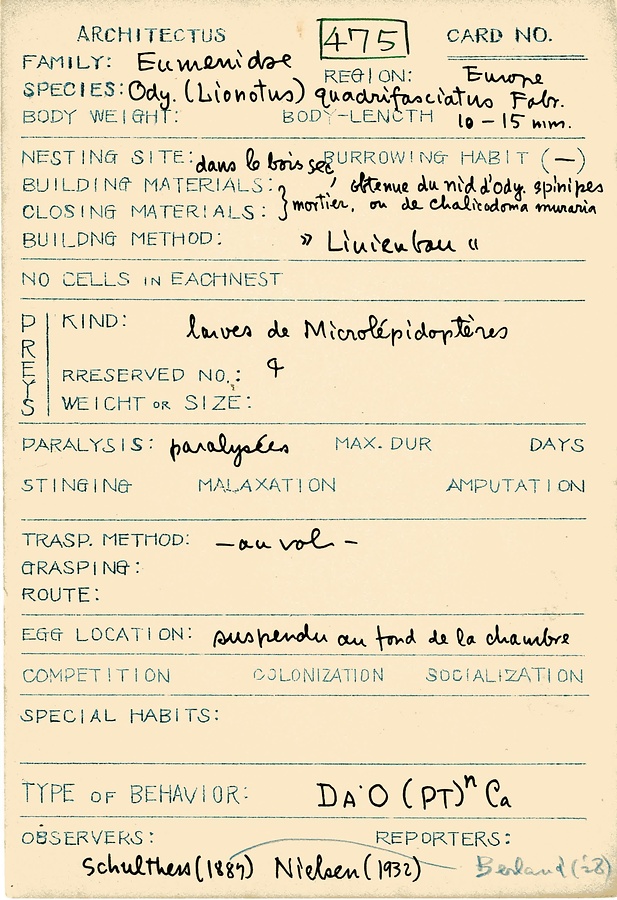 ARCHITECTUS 475 CARD NO.
FAMILY: Eumenidae REGION: Europe
SPECIES: Ody. (Lionotus) quadrifasciatus Fabr.
BODY WEIGHT: BODY-LENGTH 10-15 mm.
NESTING SITE: dans le bois sec BURROWING HABIT (—)
BUILDING MATERIALS: } mortier, obtenue du nid d'Ody. spinipes
CLOSING MATERIALS: ou de chalicodoma muraria
BUILDNG METHOD: » Linienbau «
NO CELLS IN EACHNEST
PREYS
KIND: larves de Microlépidoptères
RRESERVED NO.: 9
WEICHT OR SIZE:
PARALYSIS: paralysées MAX. DUR DAYS
STINGING MALAXATION AMPUTATION
TRASP. METHOD: — au vol —
GRASPING:
ROUTE:
EGG LOCATION: suspendu au fond de la chambre
COMPETITION COLONIZATION SOCIALIZATION
SPECIAL HABITS:
TYPE OF BEHAVIOR: DA'O (PT)ⁿ Ca
OBSERVERS: REPORTERS:
Schulthess (1887) Nielsen (1932) Berland ('28)